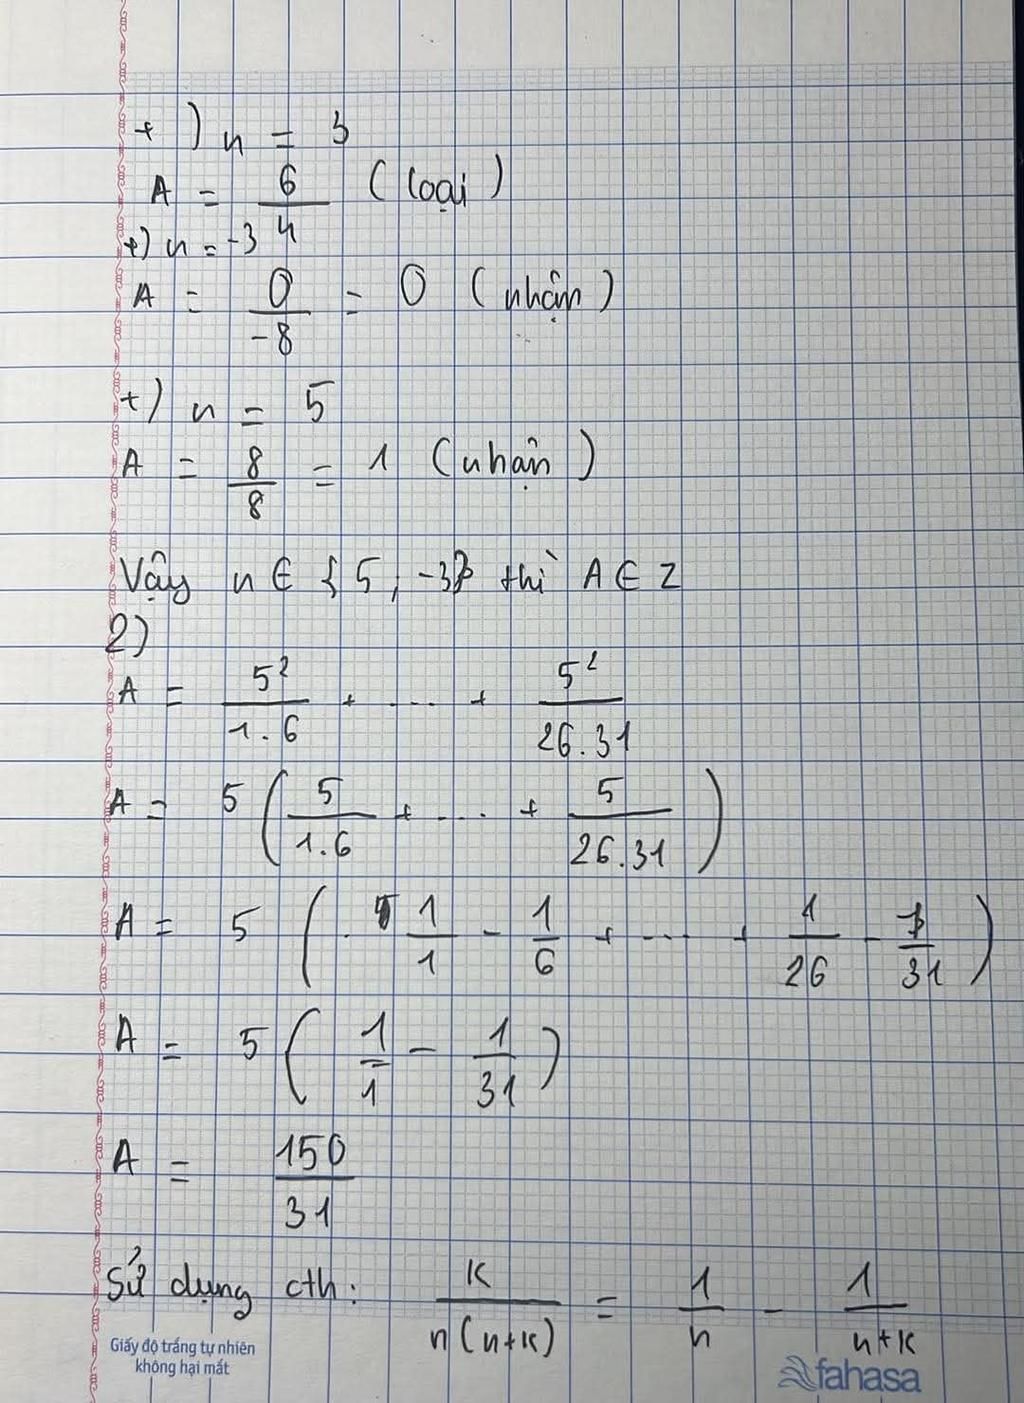 +) n = 3
A = 6/4 (loại)
+) n = -3
A = 0/-8 = 0 (nhận)
+) n = 5
A = 8/8 = 1 (nhận)
Vậy n ∈ {5; -3} thì A ∈ Z
2)
A = 5²/1.6 + .... + 5²/26.31
A = 5 (5/1.6 + .... + 5/26.31)
A = 5 (1/1 - 1/6 + .... + 1/26 - 1/31)
A = 5 (1/1 - 1/31)
A = 150/31
Sử dụng cth: k/n(n+k) = 1/n - 1/n+k
Giấy độ trắng tự nhiên
không hại mắt
fahasa